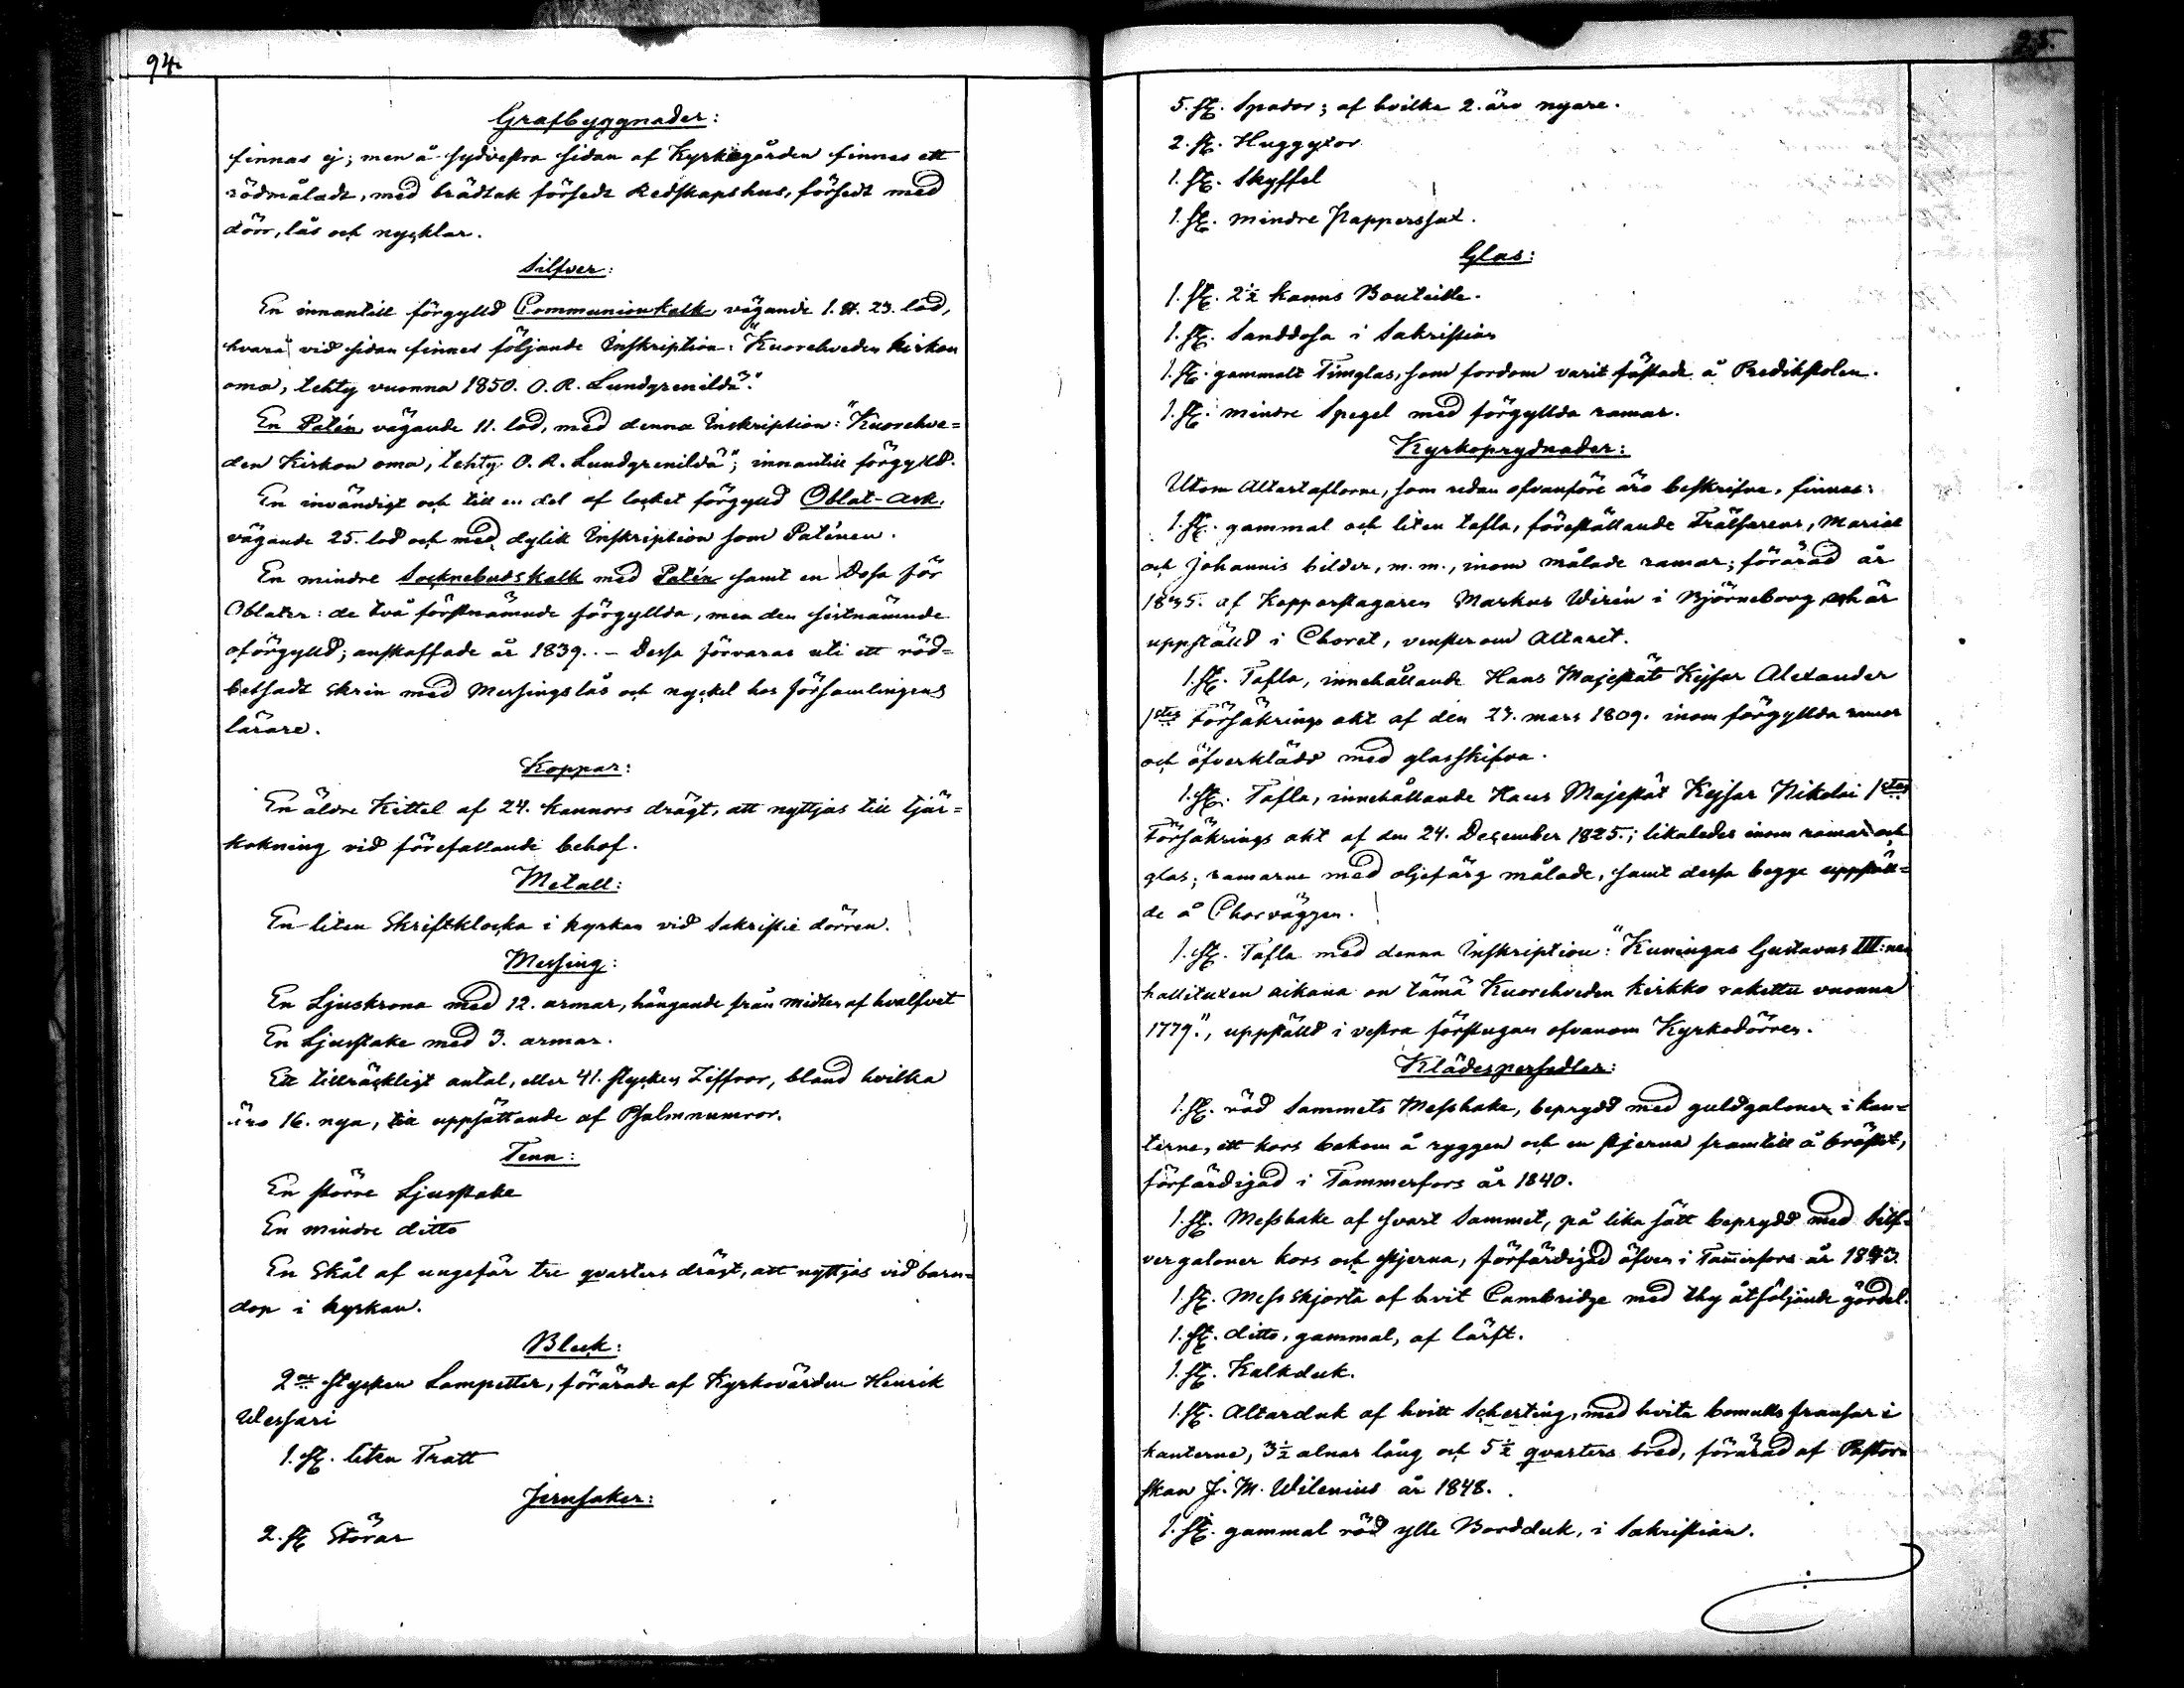 94.
Grafbyggnader:
finnas ej; men å sydvestra sidan af Kyrkogården finnes ett
rödmåladt, med brädtak försedt Redskapshus, försedt med
dörr, lås och nycklar.
Silfver:
En innantill förgylld Communionkalk vägande 1. ℔. 23. lod,
hvarå vid sidan finnes följande Inskription: "Kuorehveden kirkon
oma, tehty vuonna 1850. O. R. Lundgrenildä".
En Patén vägande 11. lod, med denna Inskription: "Kuorehve=
den Kirkon oma, tehty O. R. Lundgrenildä"; innantill förgylld.
En invändigt och till en del af locket förgylld Oblat-Ask,
vägande 25. lod och med dylik Inskription som Paténen.
En mindre Socknebudskalk med Patén samt en Dosa för
Oblater: de två förstnämnde förgyllda, men den sistnämnde
oförgylld; anskaffade år 1839. – Dessa förvaras uti ett röd=
betsadt Skrin med Messingslås och nyckel hos Församlingens
lärare.
Koppar:
En äldre Kittel af 24. kannors drägt, att nyttjas till tjär=
kokning vid förefallande behof.
Metall:
En liten Skriftklocka i kyrkan vid Sakristie dörren.
Messing:
En Ljuskrona med 12. armar, hängande från midten af hvalfvet
En Ljusstake med 3. armar.
Ett tillräckligt antal, eller 41. stycken Ziffror, bland hvilka
äro 16. nya, till uppsättande af Psalmnumror.
Tenn:
En större Ljusstake
En mindre ditto
En Skål af ungefär tre qvarters drägt, att nyttjas vid barn=
dop i kyrkan.
Bleck:
2ne stycken Lampetter, förärade af Kyrkovärden Henrik
Wessari
1. st. liten Tratt
Jernsaker:
2. st Störar
95.
5. st. Spador; af hvilka 2. äro nyare.
2. st. Huggyxor
1. st. Skyffel
1. st. mindre Papperssax.
Glas:
1. st. 2½ kanns Bouteille.
1. st. Sanddosa i Sakristian
1. st. gammalt Timglas, som fordom varit fästade å Predikstolen.
1. st. mindre Spegel med förgyllda ramar.
Kyrkoprydnader:
Utom Altartaflorne, som redan ofvanföre äro beskrifne, finnas:
1. st. gammal och liten tafla, föreställande Frälsarens, Mariae
och Johannis bilder, m. m., inom målade ramar; förärad år
1835. af Kopparslagaren Markus Wirén i Björneborg och är
uppställd i Choret, venster om Altaret.
1. st. Tafla, innehållande Hans Majestäts Kejsar Alexander
1stes Försäkrings akt af den 23. mars 1809. inom förgyllda ramar
och öfverklädd med glasskifva.
1. st. Tafla, innehållande Hans Majestät Kejsar Nikolai 1stes
Försäkrings akt af den 24. December 1825.; likaledes inom ramar och
glas; ramarne med oljefärg målade, samt dessa begge uppställ=
de å Chorväggen.
1. st. Tafla med denna Inskription: "Kuningas Gustavus III:nen
hallituxen aikana on tämä Kuorehveden kirkko rakettu vuonna
1779.", uppställd i vestra förstugan ofvanom Kyrkodörren.
Klädespersedlar:
1. st. röd Sammets Messhake, beprydd med guldgaloner i kan=
terne, ett kors bakom å ryggen och en stjerna framtill å bröstet,
förfärdigad i Tammerfors år 1840.
1. st. Messhake af svart Sammet, på lika sätt beprydd med Silf=
vergaloner kors och stjerna, förfärdigad äfven i Tam̄erfors år 1843.
1. st. Messskjorta af hvit Cambridge med thy åtföljande gördel.
1. st. ditto, gammal, af lärft.
1. st. Kalkduk.
1. st. Altarduk af hvitt Scherting, med hvita bomulls fransar i
kanterne, 3½ alnar lång och 5½ qvarters bred, förärad af Pastors
skan J. M. Wilenius år 1848.
1. st. gammal röd ylle Bordduk, i Sakristian.